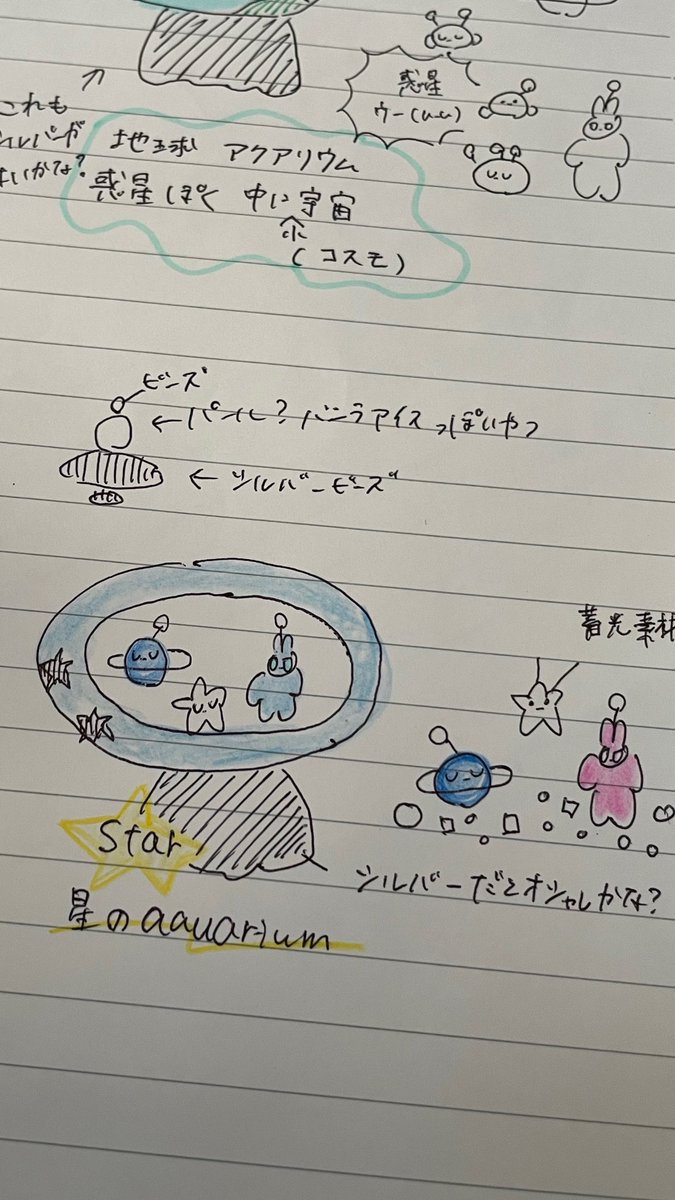 惑星
ウー(u.u)
これも
シルバーが
いいかな?
地球 アクアリウム
惑星ぽく 中に宇宙
(コスモ)
ビーズ
← パール? バニラアイスっぽいやつ
← シルバービーズ
蓄光素材
Star
シルバーだとオシャレかな?
星のaauarium